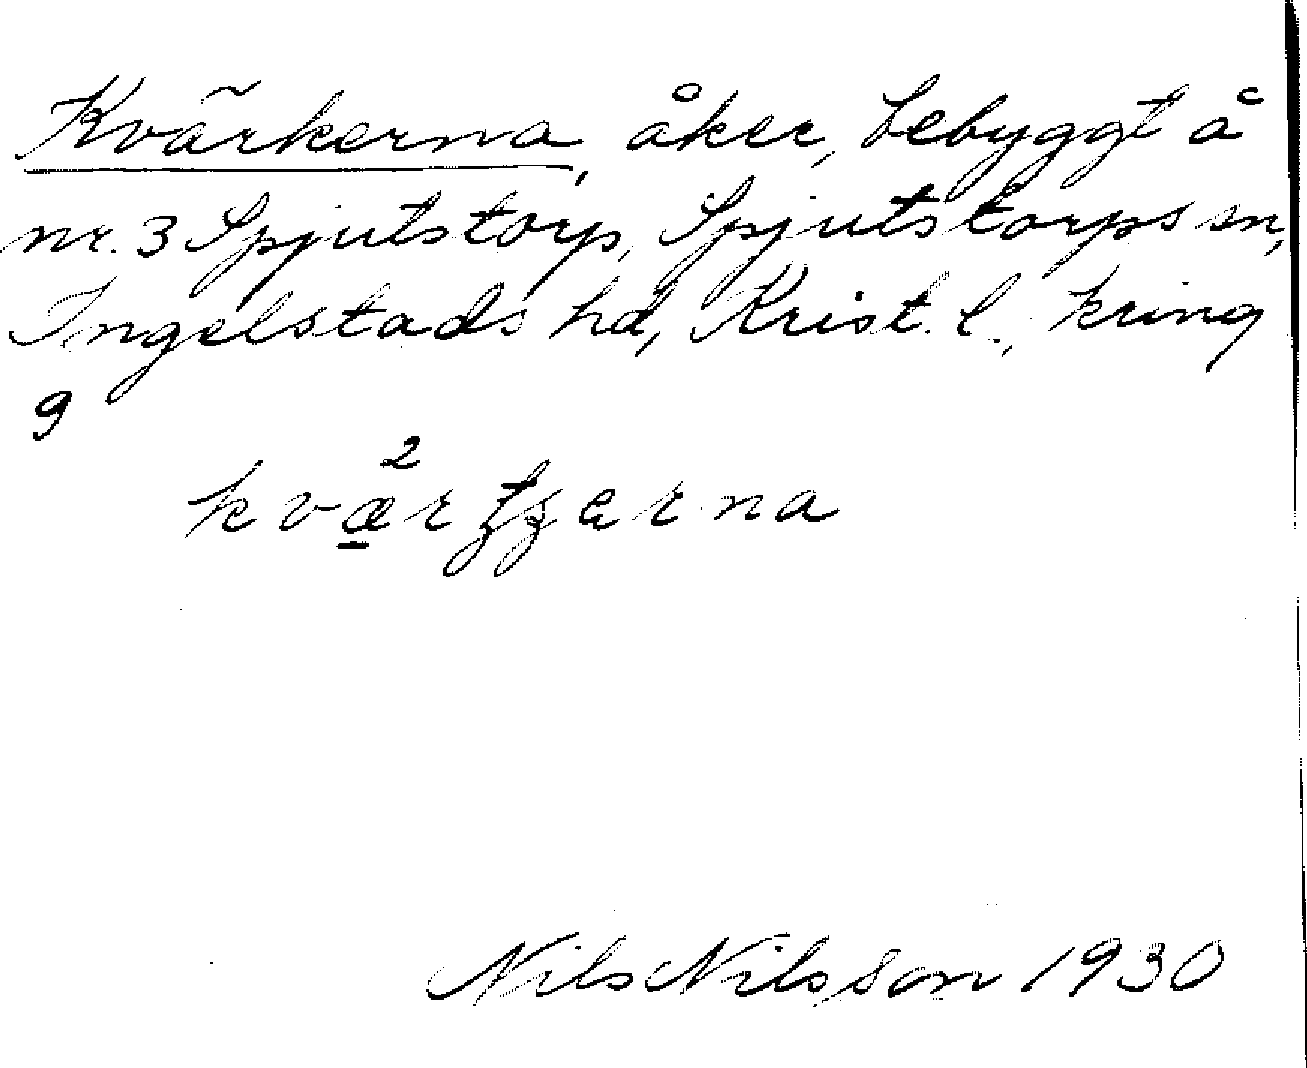 Kvärkerna, åker, bebyggt å
nr. 3 Spjutstorp, Spjutstorps sn,
Ingelstads hd, Krist. l., kring
9
2
kværtʒerna
Nils Nilsson 1930